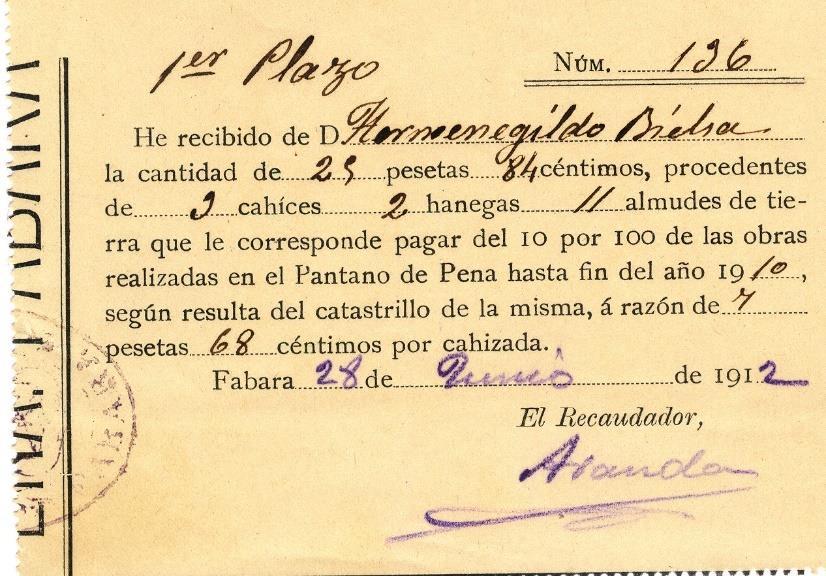 1er Plazo
NÚM. 136
He recibido de D. Hermenegildo Bielsa
la cantidad de 25 pesetas 84 céntimos, procedentes
de 3 cahíces 2 hanegas 11 almudes de tie-
rra que le corresponde pagar del 10 por 100 de las obras
realizadas en el Pantano de Pena hasta fin del año 1910,
según resulta del catastrillo de la misma, á razón de 7
pesetas 68 céntimos por cahizada.
Fabara 28 de Junio de 1912
El Recaudador,
Aranda